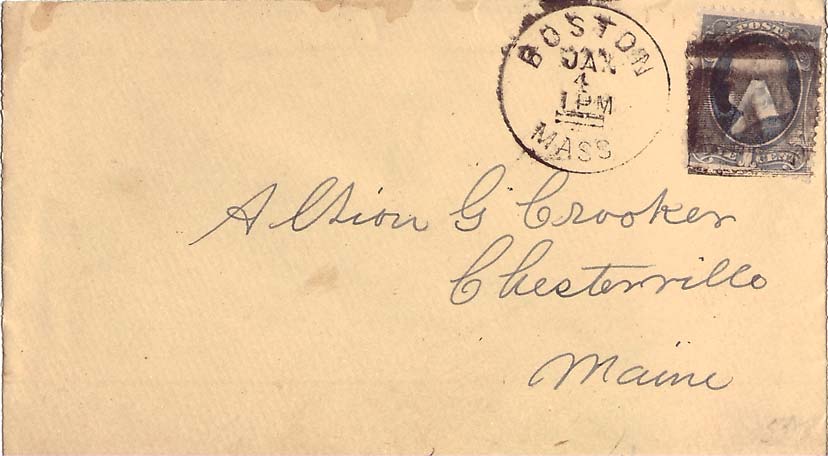 BOSTON
JAN
4
1PM
MASS
POST
ONE CENT
Albion G Crooker
Chesterville
Maine